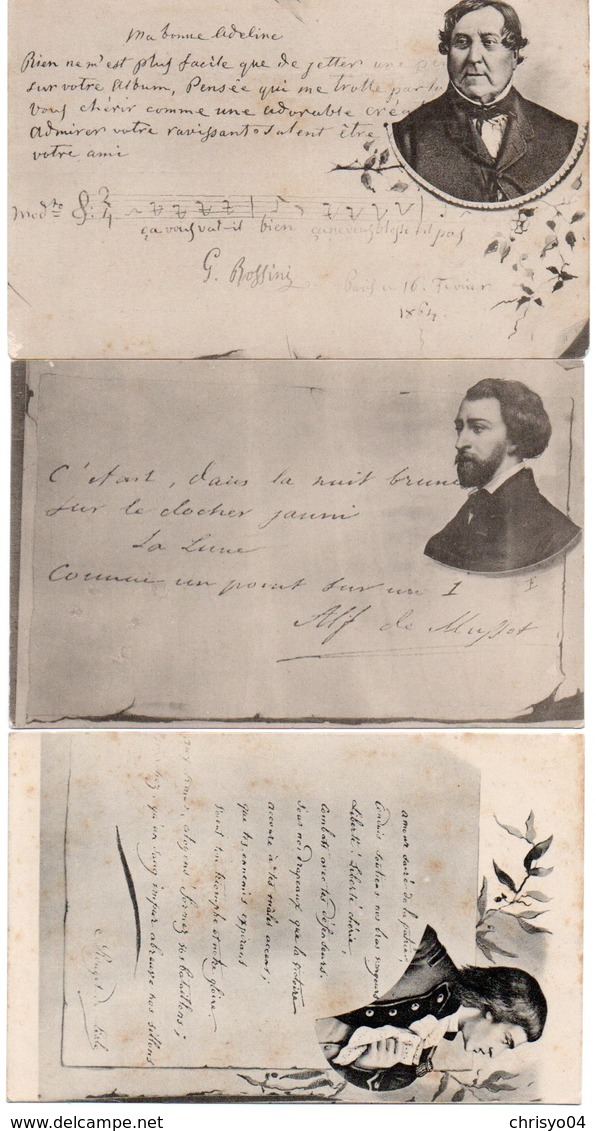 Ma bonne Adeline
Rien ne m'est plus facile que de jetter une
sur votre Album, Pensée qui me trotte par
vous chérir comme une adorable
admirer votre ravissant talent être
votre ami
Mod.to
ça vous vat-il bien ça ne vous blesse-t-il pas
G. Rossini
Paris ce 16. Fevrier
1864.
C'était, dans la nuit brune
Sur le clocher jauni
La Lune
Comme un point sur un I
Alf de Musset
amour sacré de la patrie,
Conduis soutiens nos bras vengeurs
Liberté! Liberté chérie,
Combats avec tes défenseurs.
Sous nos drapeaux que la victoire
accoure à tes mâles accens;
que tes ennemis expirans
voient ton triomphe et notre gloire.
aux armes, citoyens! formez vos bataillons;
qu'un sang impur abreuve nos sillons
Rouget de Lisle
chrisyo04